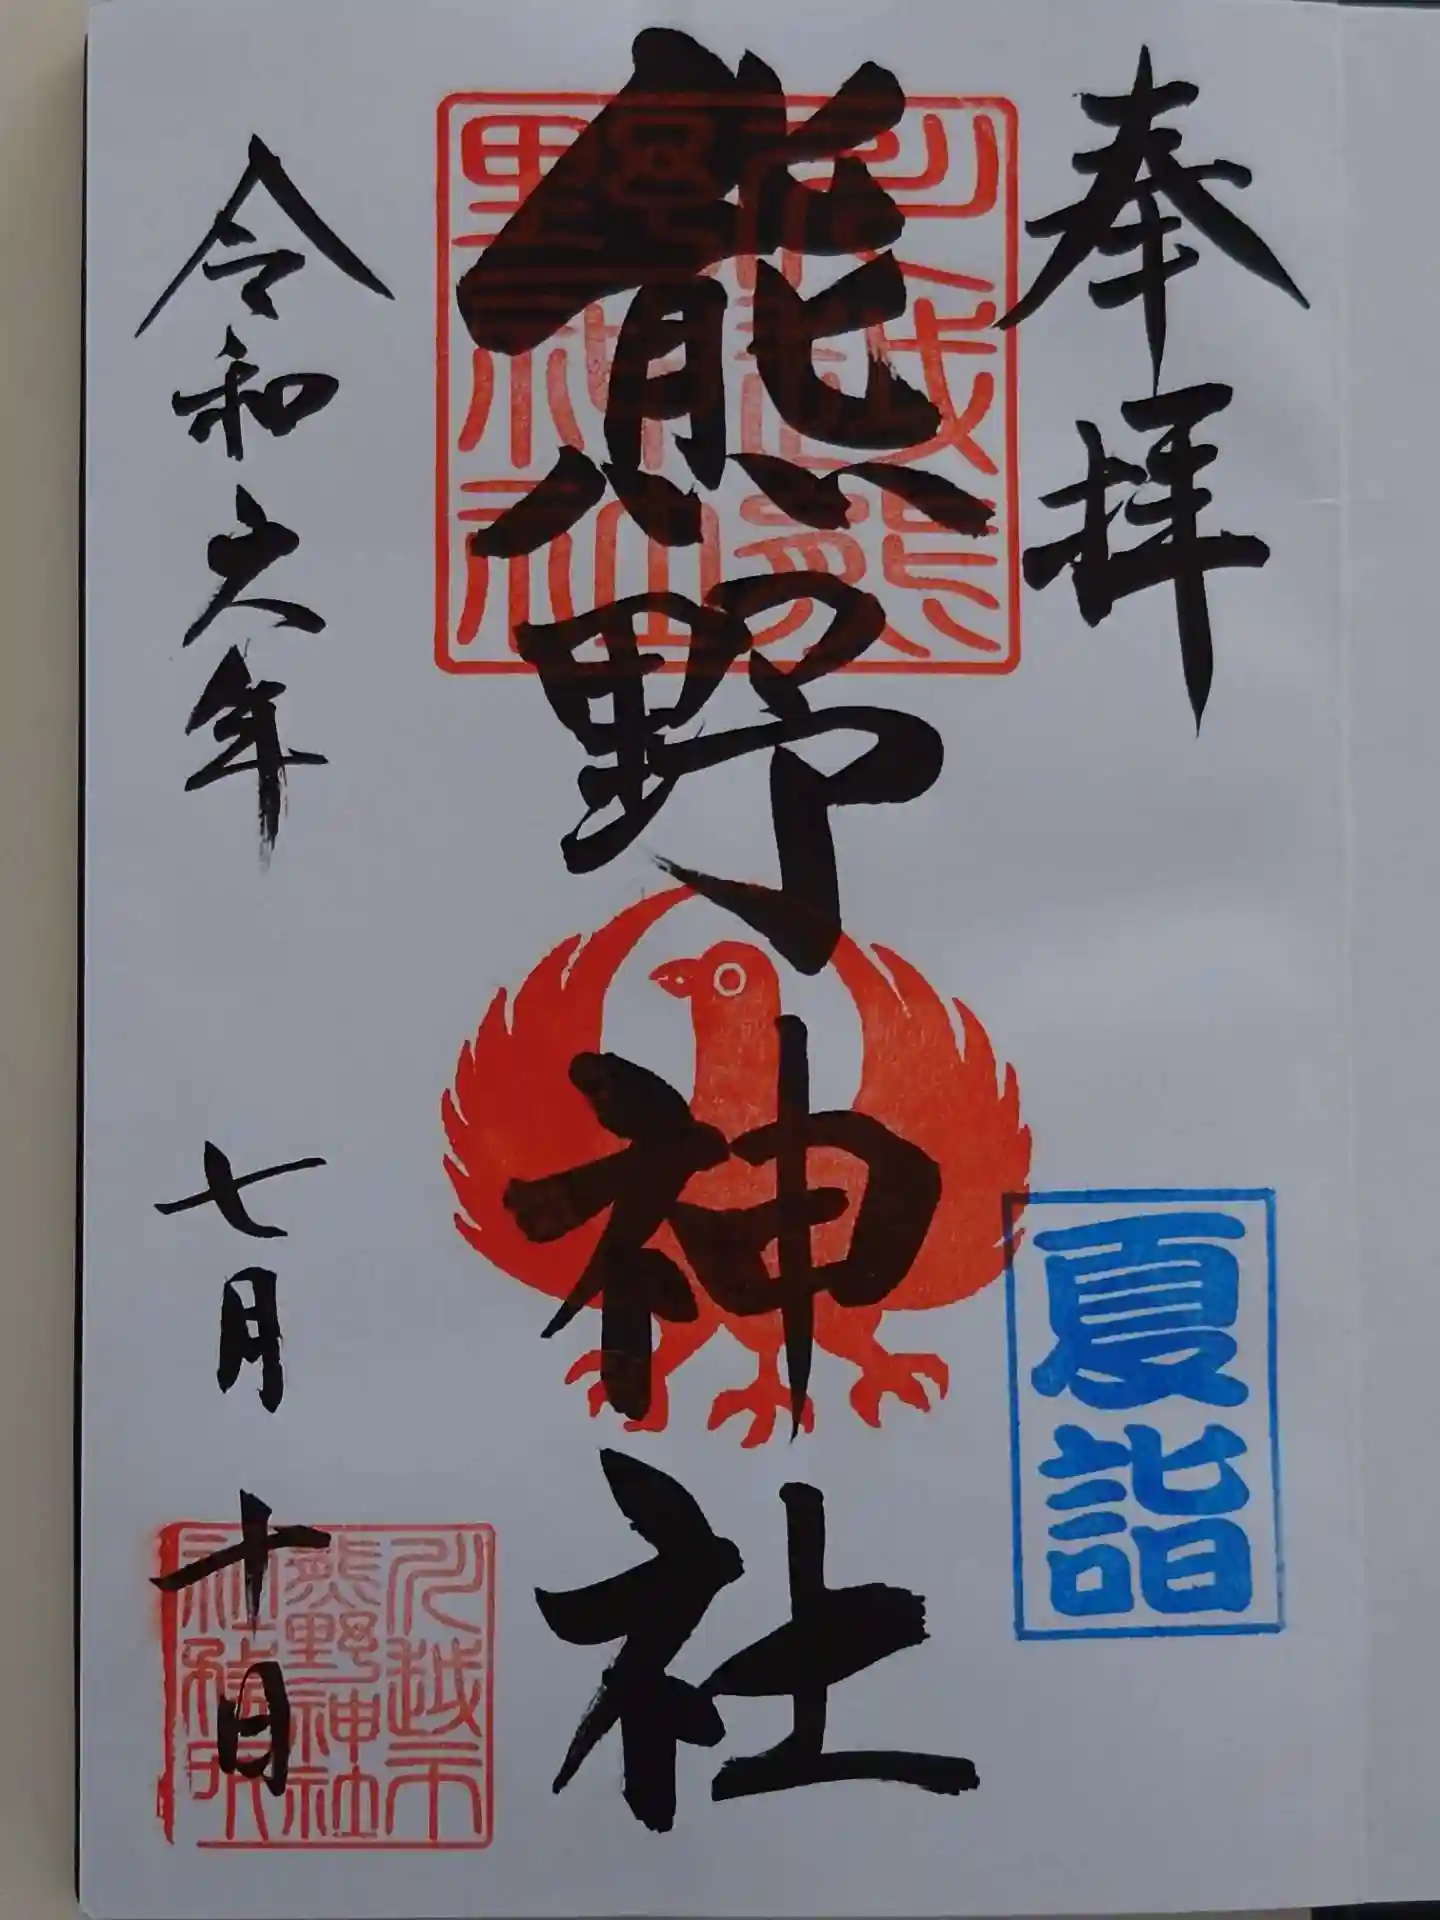 奉拝
夏詣
熊野神社
川越熊
野神社
令和六年 七月 十日
川越市
熊野神社
社務所印